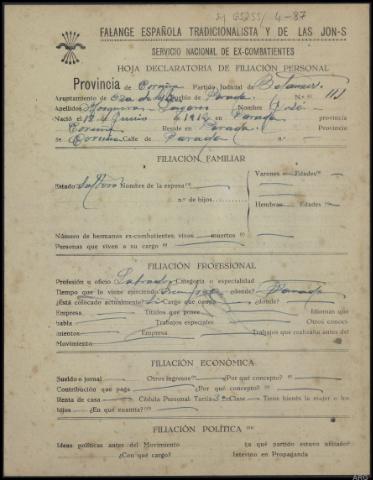 4-87
FALANGE ESPAÑOLA TRADICIONALISTA Y DE LAS JON-S
SERVICIO NACIONAL DE EX-COMBATIENTES
HOJA DECLARATORIA DE FILIACIÓN PERSONAL
Provincia de Coruña Partido Judicial de Betanzos
Ayuntamiento de Parada N.º
Apellidos Nombre José
Nació el 12 Junio 1912 en Parada provincia
Coruña Reside en Parada provincia
Coruña Calle de Parada n.º
FILIACIÓN FAMILIAR
Varones Edades
Estado Soltero Nombre de la esposa
n.º de hijos
Hembras Edades
Número de hermanos ex-combatientes, vivos muertos
Personas que viven a su cargo
FILIACIÓN PROFESIONAL
Profesión u oficio Labrador Categoría o especialidad
Tiempo que lo viene ejerciendo ¿dónde? Parada
¿Está colocado actualmente? Cargo que ocupa ¿dónde?
Empresa Títulos que posee Idiomas que
habla Trabajos especiales Otros conoci-
mientos Empresa Trabajos que realizaba antes del
Movimiento
FILIACIÓN ECONÓMICA
Sueldo o jornal Otros ingresos ¿Por qué concepto?
Contribución que paga ¿Por qué concepto?
Renta de casa Cédula Personal Tarifa Clase Tiene bienes la mujer o los
hijos ¿En qué cuantía?
FILIACIÓN POLÍTICA
Ideas políticas antes del Movimiento La qué partido estuvo afiliado?
¿Con qué cargo? Intervino en Propaganda